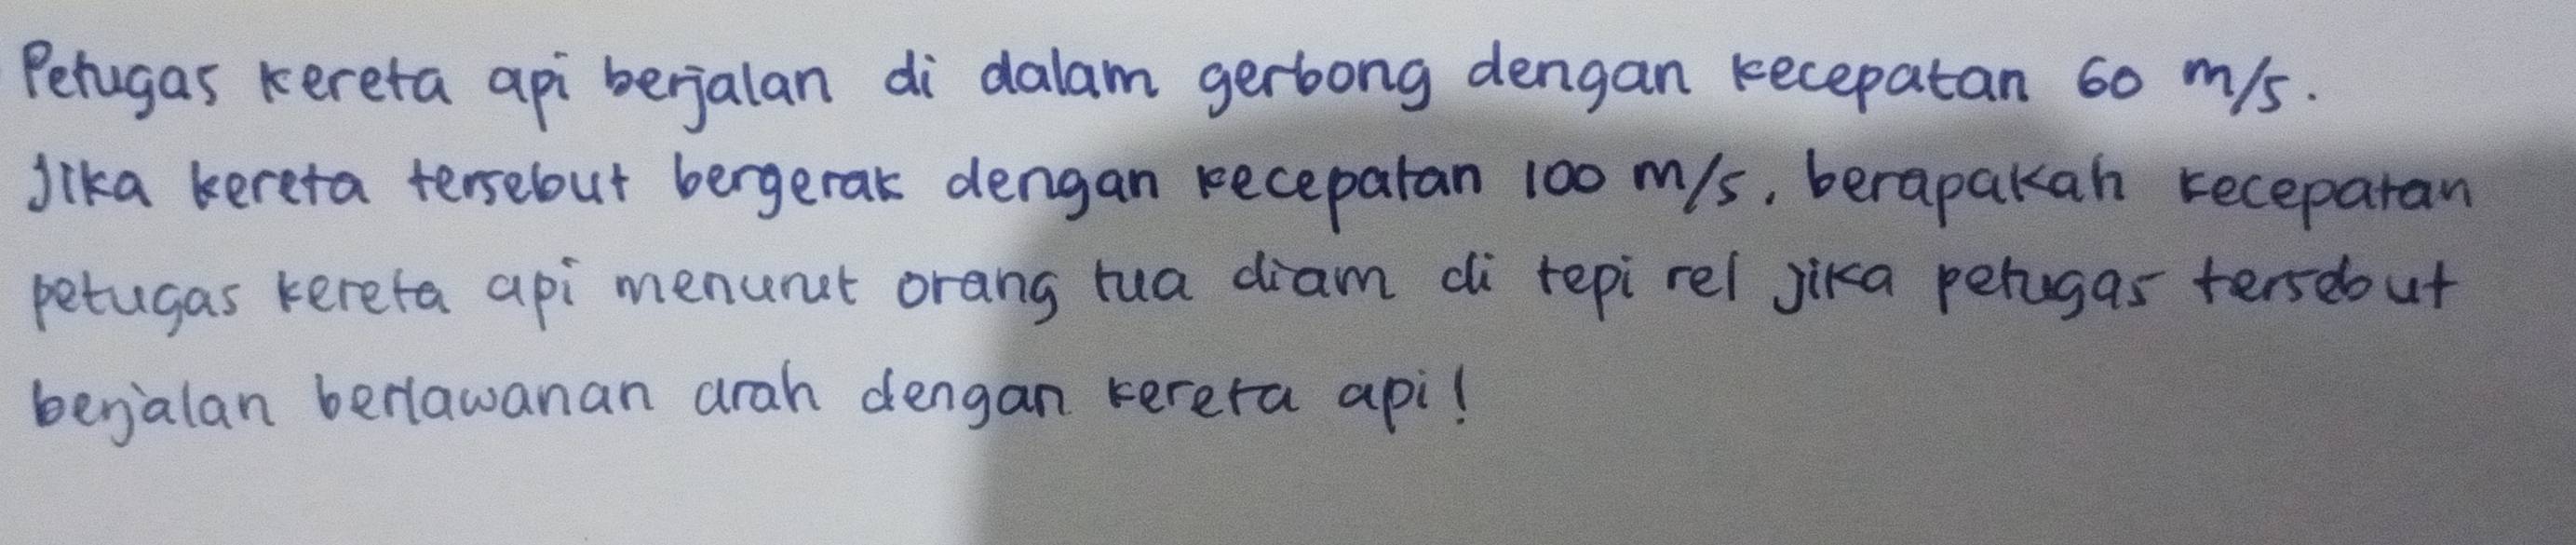 Petugas kereta api berjalan di dalam gerbong dengan kecepatan 60 m/s.
Jika kereta tersebut bergerak dengan kecepatan 100 m/s, berapakah kecepatan
petugas kereta api menurut orang tua diam di tepi rel jika petugas tersebut
berjalan berlawanan arah dengan kereta api!